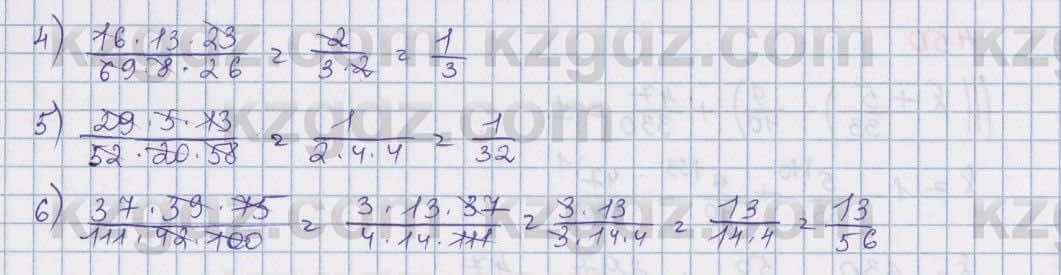 4) 16·13·23/69·8·26 = 2/3·2 = 1/3
5) 29·5·13/52·20·58 = 1/2·4·4 = 1/32
6) 37·39·75/111·42·100 = 3·13·37/4·14·111 = 3·13/3·14·4 = 13/14·4 = 13/56
kzgdz.com